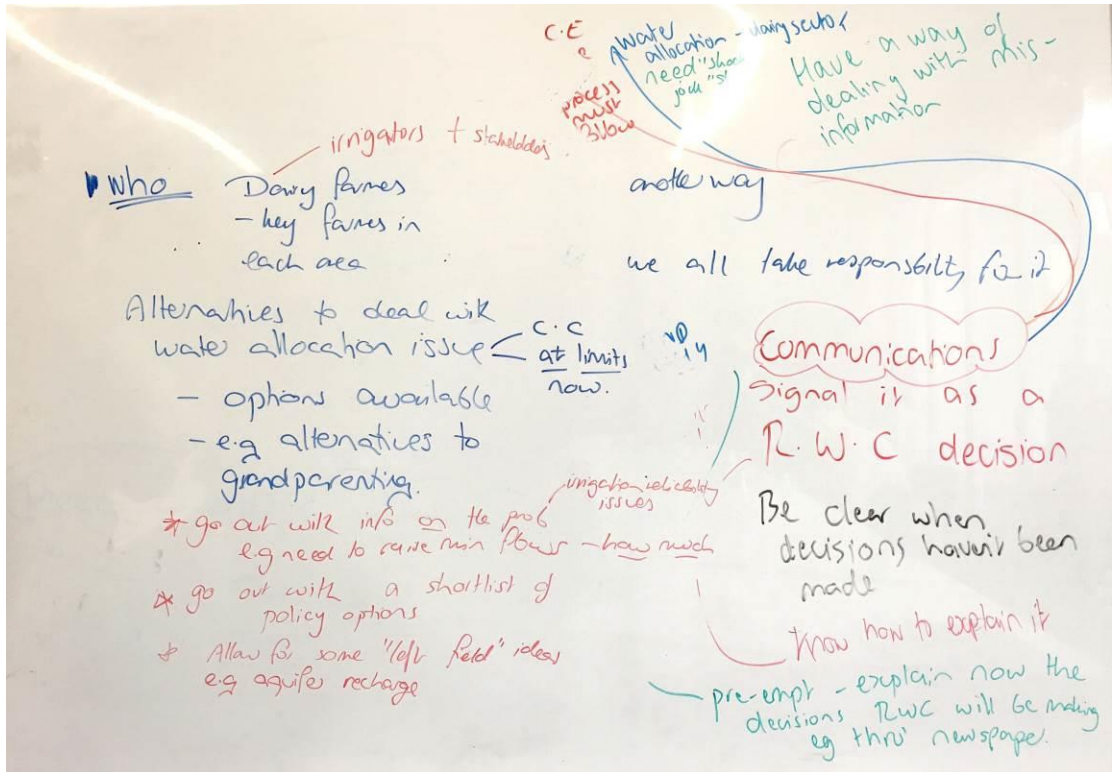 C.E
?
water
allocation - dairy sector
need "shock
jock "s!
process
must
allow
Have a way of
dealing with mis-
information
irrigators + stakeholders
who
Dairy farmers
- key farmers in
each area
another way
we all take responsibility for it
Alternatives to deal with
water allocation issue
C.C
at limits
now.
- options available
- e.g alternatives to
grandparenting.
Communications
Signal it as a
R.W.C decision
irrigation reliability
issues
* go out with info on the prob
e.g need to raise min flows - how much
* go out with a shortlist of
policy options
* Allow for some "left field" ideas
e.g aquifer recharge
Be clear when
decisions haven't been
made
know how to explain it
pre-empt - explain now the
decisions RWC will be making
eg thru' newspaper.